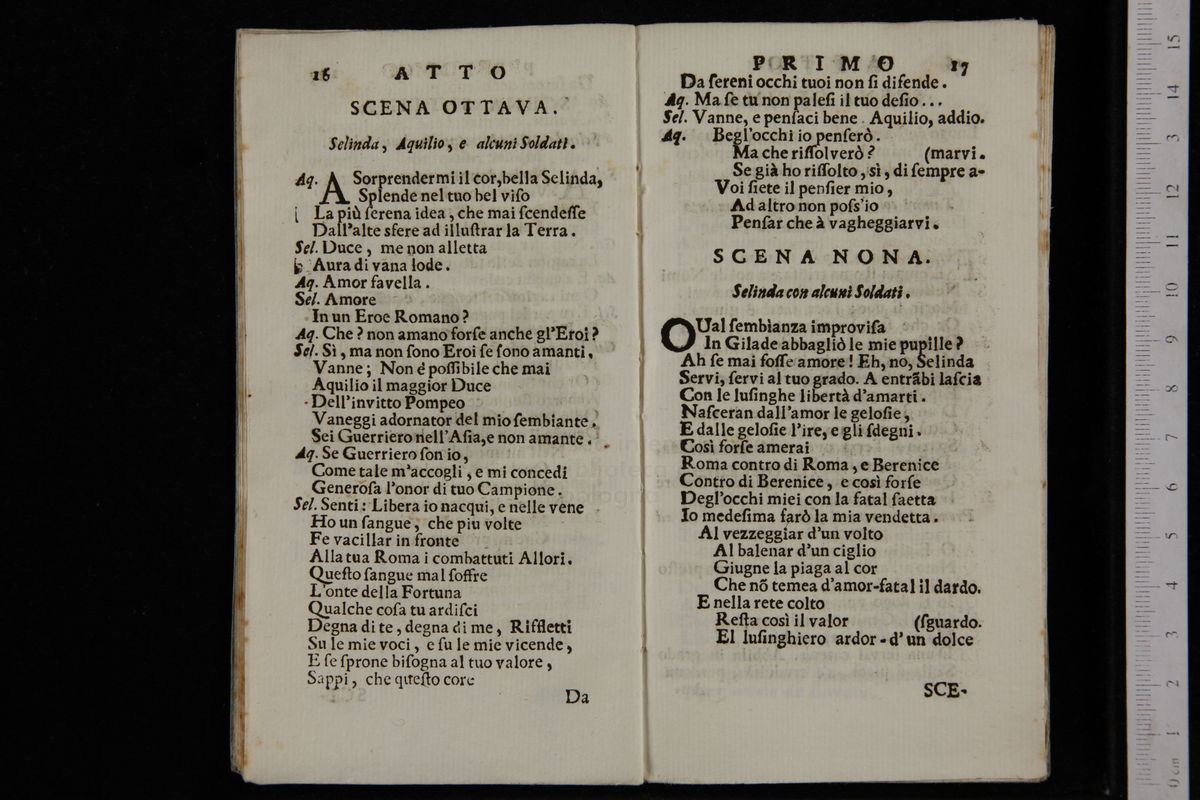 16 ATTO
SCENA OTTAVA.
Selinda, Aquilio, e alcuni Soldati.
Aq. A Sorprendermi il cor, bella Selinda,
Splende nel tuo bel viſo
La più ſerena idea, che mai ſcendeſſe
Dall'alte sfere ad illuſtrar la Terra.
Sel. Duce, me non alletta
Aura di vana lode.
Aq. Amor favella.
Sel. Amore
In un Eroe Romano?
Aq. Che? non amano forſe anche gl'Eroi?
Sel. Sì, ma non ſono Eroi ſe ſono amanti.
Vanne; Non è poſſibile che mai
Aquilio il maggior Duce
Dell'invitto Pompeo
Vaneggi adornator del mio ſembiante.
Sei Guerriero nell'Aſia, e non amante.
Aq. Se Guerriero ſon io,
Come tale m'accogli, e mi concedi
Generoſa l'onor di tuo Campione.
Sel. Senti: Libera io nacqui, e nelle vene
Ho un ſangue, che piu volte
Fe vacillar in fronte
Alla tua Roma i combattuti Allori.
Queſto ſangue mal ſoffre
L'onte della Fortuna
Qualche coſa tu ardiſci
Degna di te, degna di me, Riffletti
Su le mie voci, e ſu le mie vicende,
E ſe ſprone biſogna al tuo valore,
Sappi, che queſto core
Da
PRIMO 17
Da ſereni occhi tuoi non ſi difende.
Aq. Ma ſe tu non paleſi il tuo deſio...
Sel. Vanne, e penſaci bene. Aquilio, addio.
Aq. Begl'occhi io penſerò.
Ma che riſſolverò? (marvi.
Se già ho riſſolto, sì, di ſempre a-
Voi ſiete il penſier mio,
Ad altro non poſs'io
Penſar che à vagheggiarvi.
SCENA NONA.
Selinda con alcuni Soldati.
QUal ſembianza improviſa
In Gilade abbagliò le mie pupille?
Ah ſe mai foſſe amore! Eh, no, Selinda
Servi, ſervi al tuo grado. A entrãbi laſcia
Con le luſinghe libertà d'amarti.
Naſceran dall'amor le geloſie,
E dalle geloſie l'ire, e gli ſdegni.
Così forſe amerai
Roma contro di Roma, e Berenice
Contro di Berenice, e così forſe
Degl'occhi miei con la fatal ſaetta
Io medeſima farò la mia vendetta.
Al vezzeggiar d'un volto
Al balenar d'un ciglio
Giugne la piaga al cor
Che nõ temea d'amor-fatal il dardo.
E nella rete colto
Reſta così il valor (ſguardo.
El luſinghiero ardor-d'un dolce
SCE-